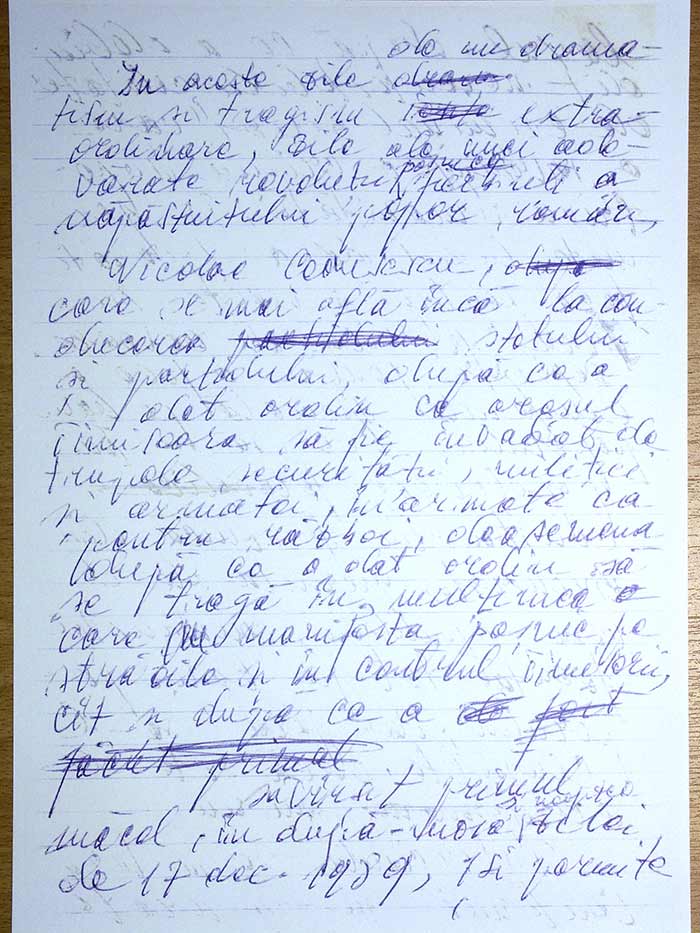 de un drama-
În aceste zile
tism și tragism extra-
ordinare, zile ale unei ade-
vărate revoluții, pașnică
năpăstuitului popor român,
Nicolae Ceaușescu, după
care se mai află încă la con-
ducerea partidului statului
și partidului, după ce a
dat ordin ca orașul
Timișoara să fie invadat de
trupele securității, miliției
și armatei, înarmate ca
pentru război, deasemena
după ce a dat ordin să
se tragă în mulțimea
care manifesta pașnic pe
străzile și în centrul Timișorii,
cît și după ce a
făcut primul
săvîrșit primul
măcel, în după-masa zilei
de 17 dec. 1989, își permite